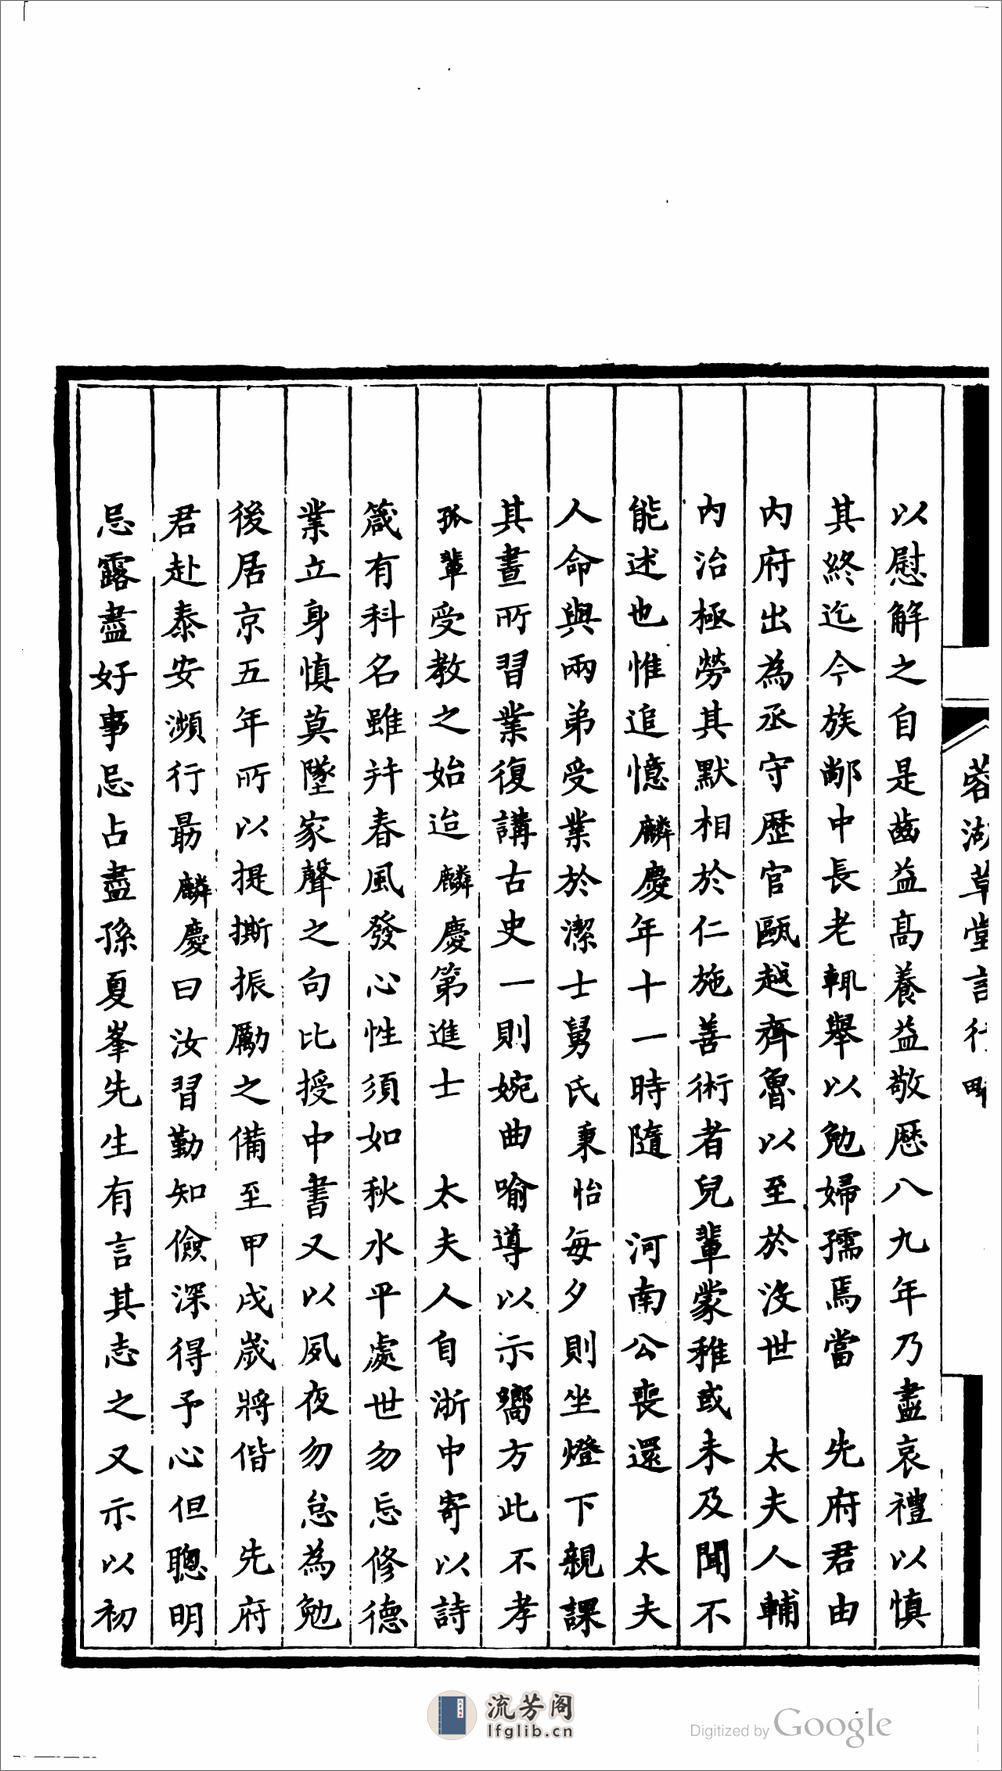 以慰解之自是齒益高養益敬歷八九年乃盡哀禮以慎
其終迄今族鄰中長老輒舉以勉婦孺焉當　先府君由
內府出為丞守歷官甌越齊魯以至於沒世　太夫人輔
內治極勞其默相於仁施善術者兒輩蒙稚或未及聞不
能述也惟追憶麟慶年十一時隨　河南公喪還　太夫
人命與兩弟受業於潔士舅氏秉怡每夕則坐燈下親課
其晝所習業復講古史一則婉曲喻導以示嚮方此不孝
孤輩受教之始迨麟慶第進士　太夫人自浙中寄以詩
箴有科名雖并春風發心性須如秋水平處世勿忘修德
業立身慎莫墜家聲之句比授中書又以夙夜勿怠為勉
後居京五年所以提撕振勵之備至甲戌歲將偕　先府
君赴泰安瀕行最麟慶曰汝習勤知儉深得予心但聰明
忌露盡好事忌占盡孫夏峯先生有言其志之又示以初
蓉湖草堂詩行略
流芳阁
lfglib.cn
Digitized by Google